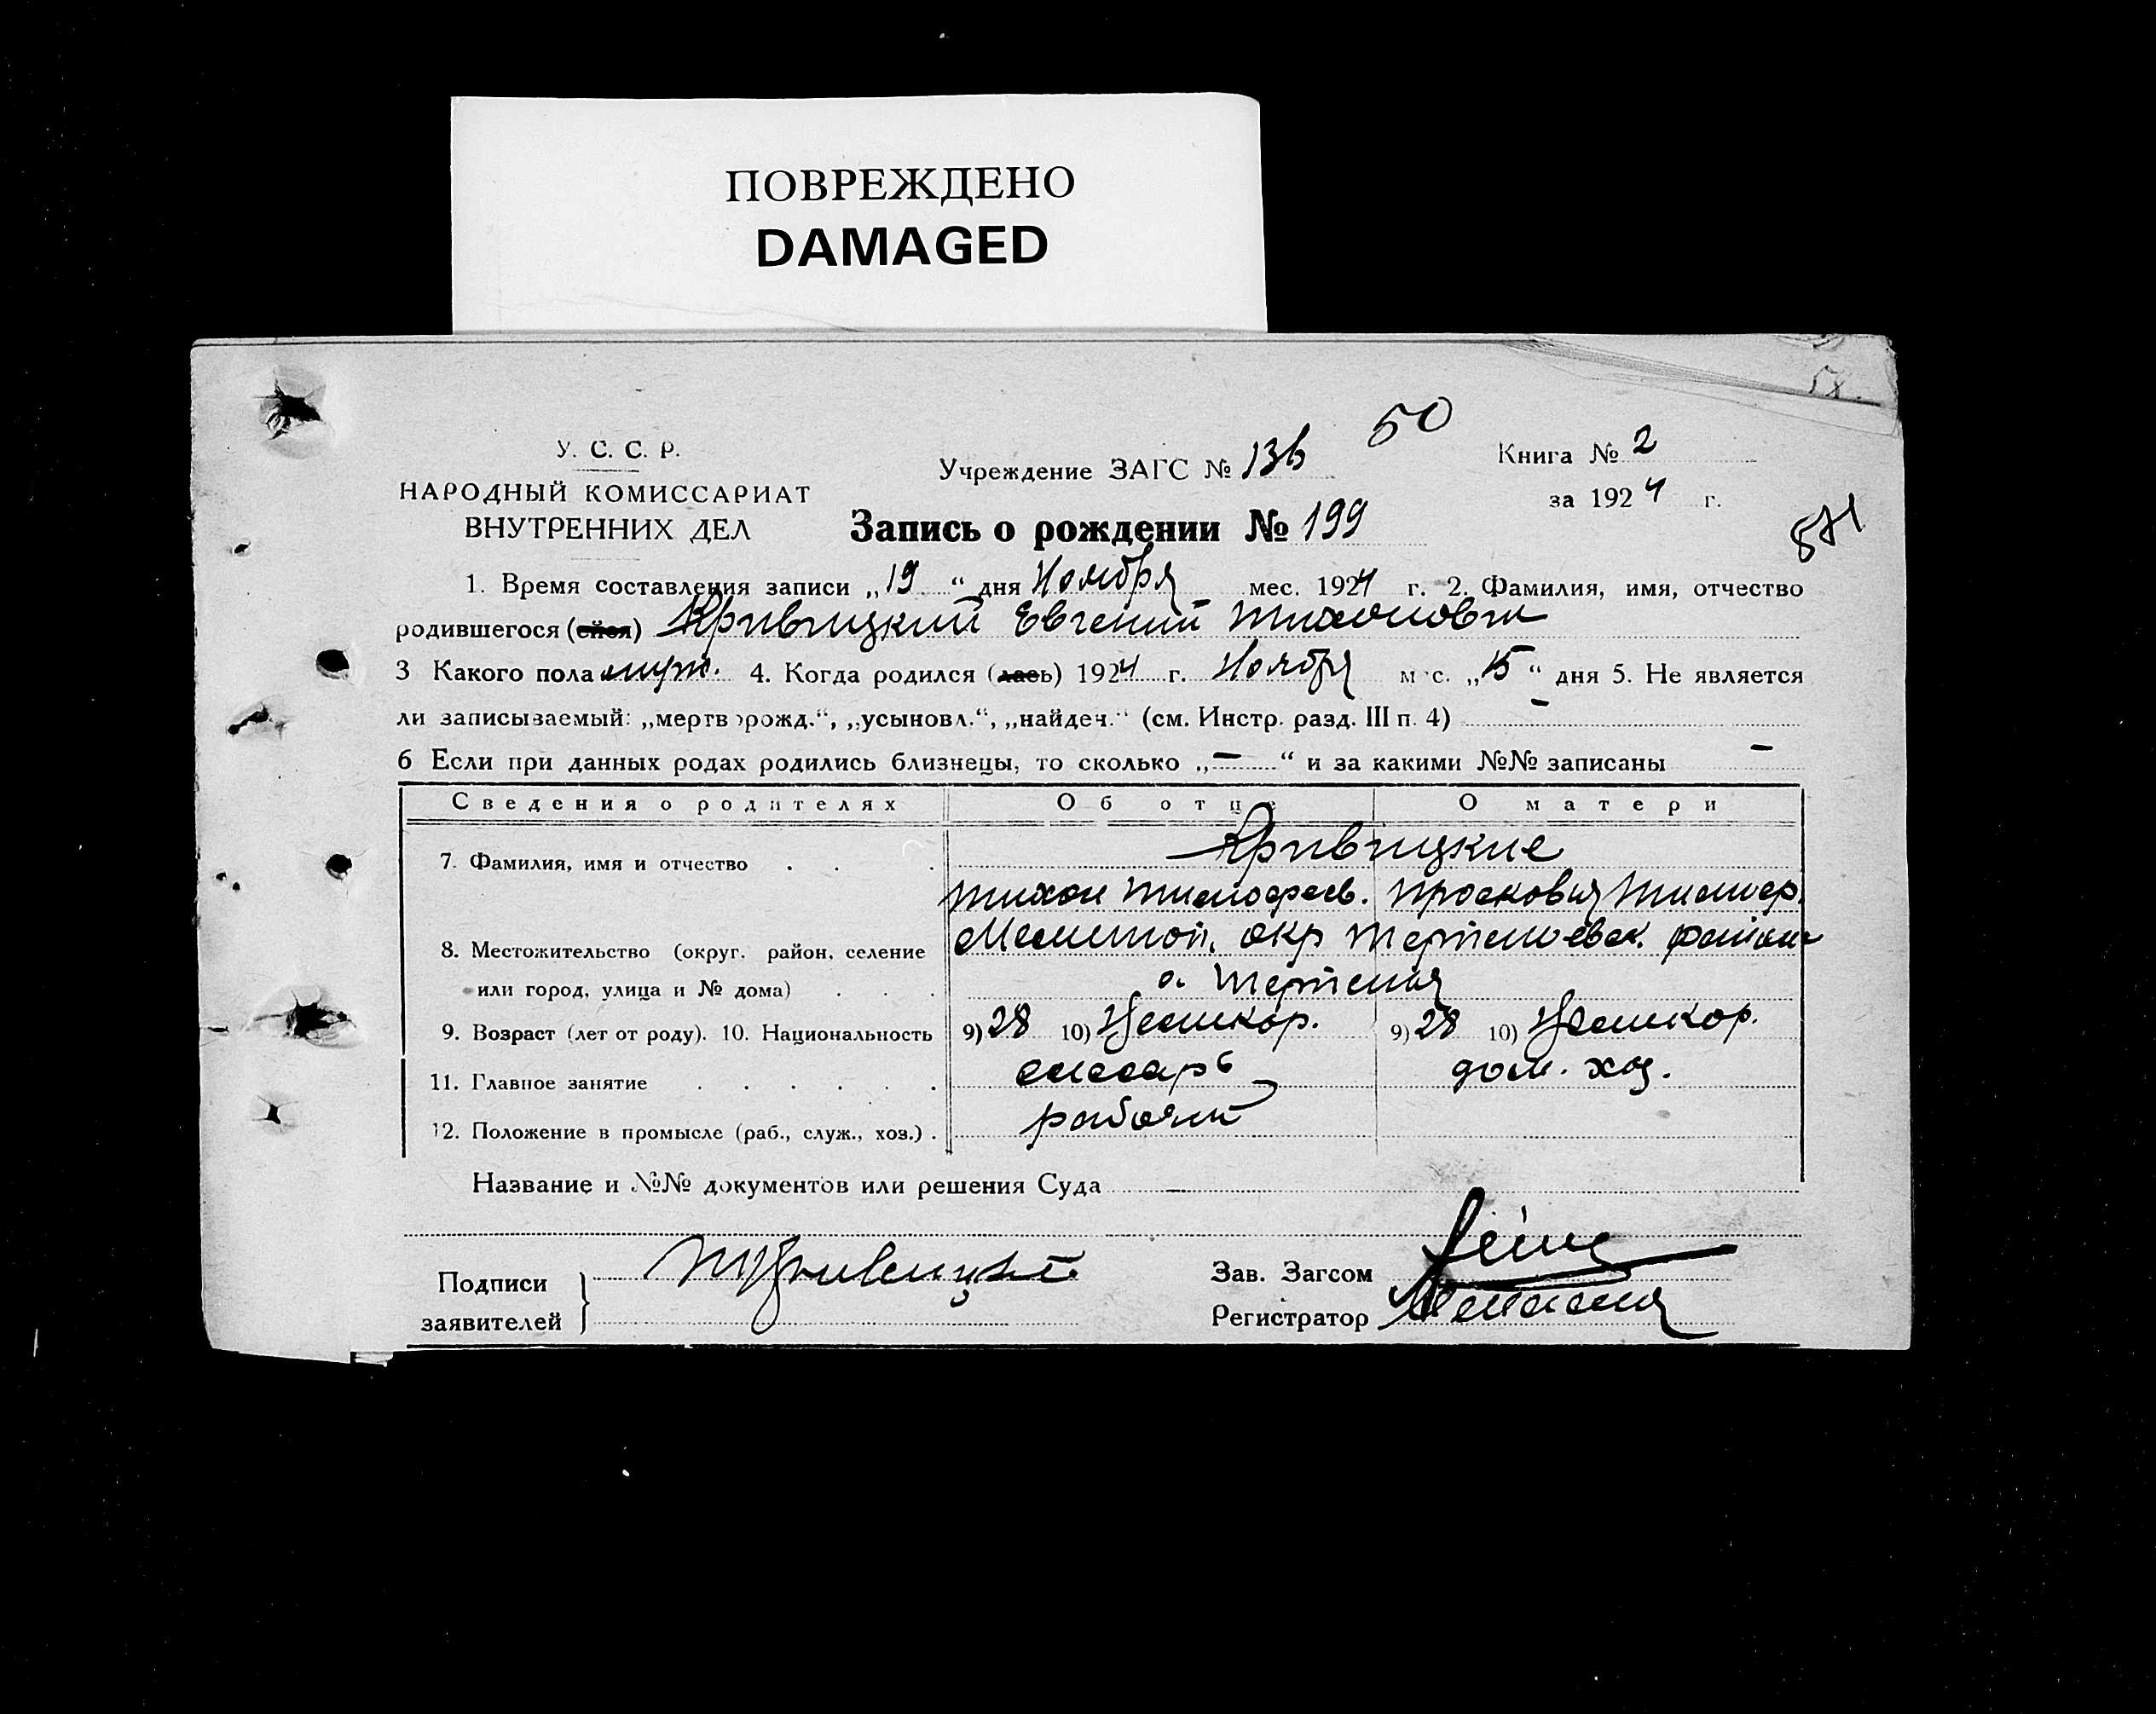 ПОВРЕЖДЕНО
DAMAGED
50
У. С. С. Р.
Учреждение ЗАГС № 136
Книга № 2
НАРОДНЫЙ КОМИССАРИАТ
за 1924 г.
ВНУТРЕННИХ ДЕЛ
Запись о рождении № 199
571
1. Время составления записи „19“ дня Ноября мес. 1924 г. 2. Фамилия, имя, отчество
родившегося (ейся) Кривицкий Евгений Тихонович
3 Какого пола муж. 4. Когда родился (лась) 1924 г. Ноября мес. „15“ дня 5. Не является
ли записываемый: „мертворожд.“, „усыновл.“, „найден.“ (см. Инстр. разд. III п. 4) —
6 Если при данных родах родились близнецы, то сколько „—“ и за какими №№ записаны —
Сведения о родителях Об отце О матери
Кривицкие
7. Фамилия, имя и отчество . . .
Тихон Тимофеев. Просковья Тимоф.
8. Местожительство (округ, район, селение Мелитоп. окр
или город, улица и № дома) . . .
9. Возраст (лет от роду). 10. Национальность 9) 28 10) 9) 28 10)
11. Главное занятие . . . . . . слесарь дом. хоз.
12. Положение в промысле (раб., служ., хоз.) . рабочий
Название и №№ документов или решения Суда —
Подписи
заявителей
Зав. Загсом
Регистратор